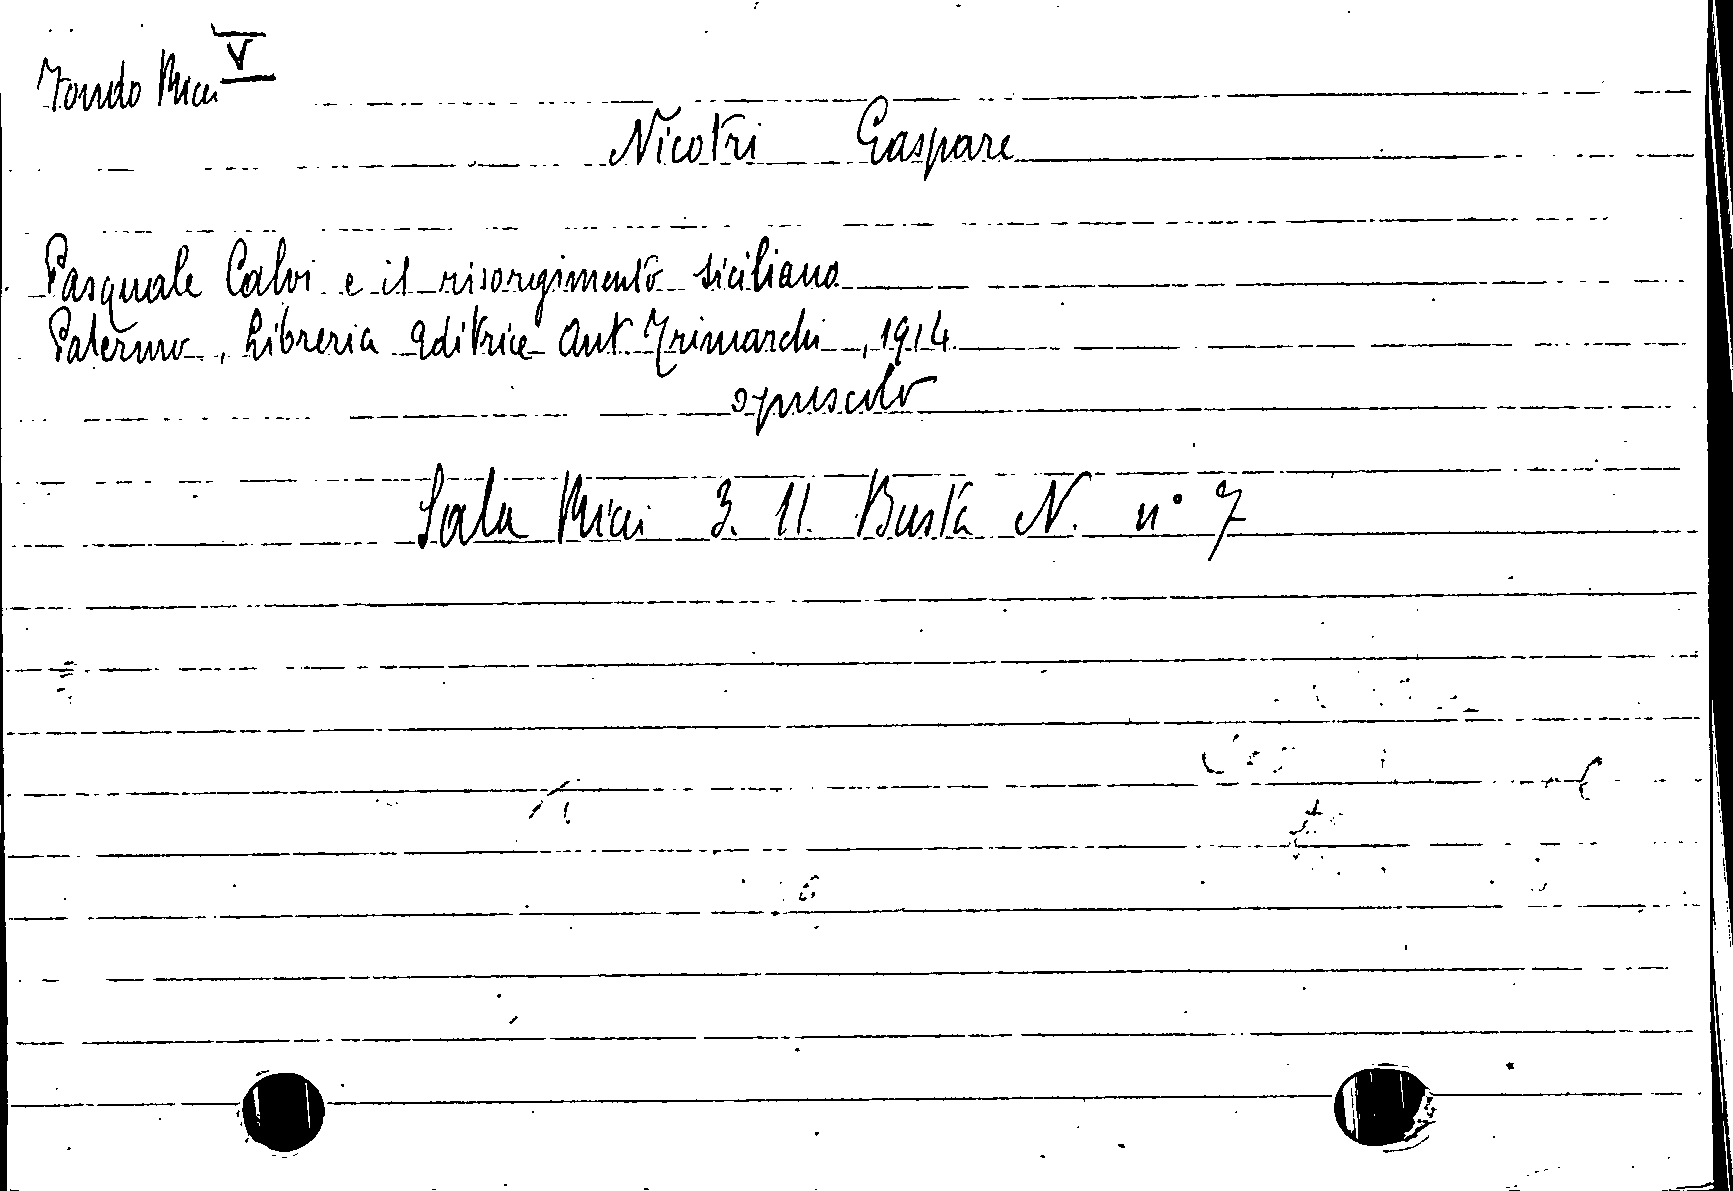 Fondo Ricci V
Nicotri Gaspare
Pasquale Calvi e il risorgimento siciliano
Palermo, Libreria Editrice Ant Trimarchi, 1914
opuscolo
Sala Ricci 3. 11. Busta N. n° 7